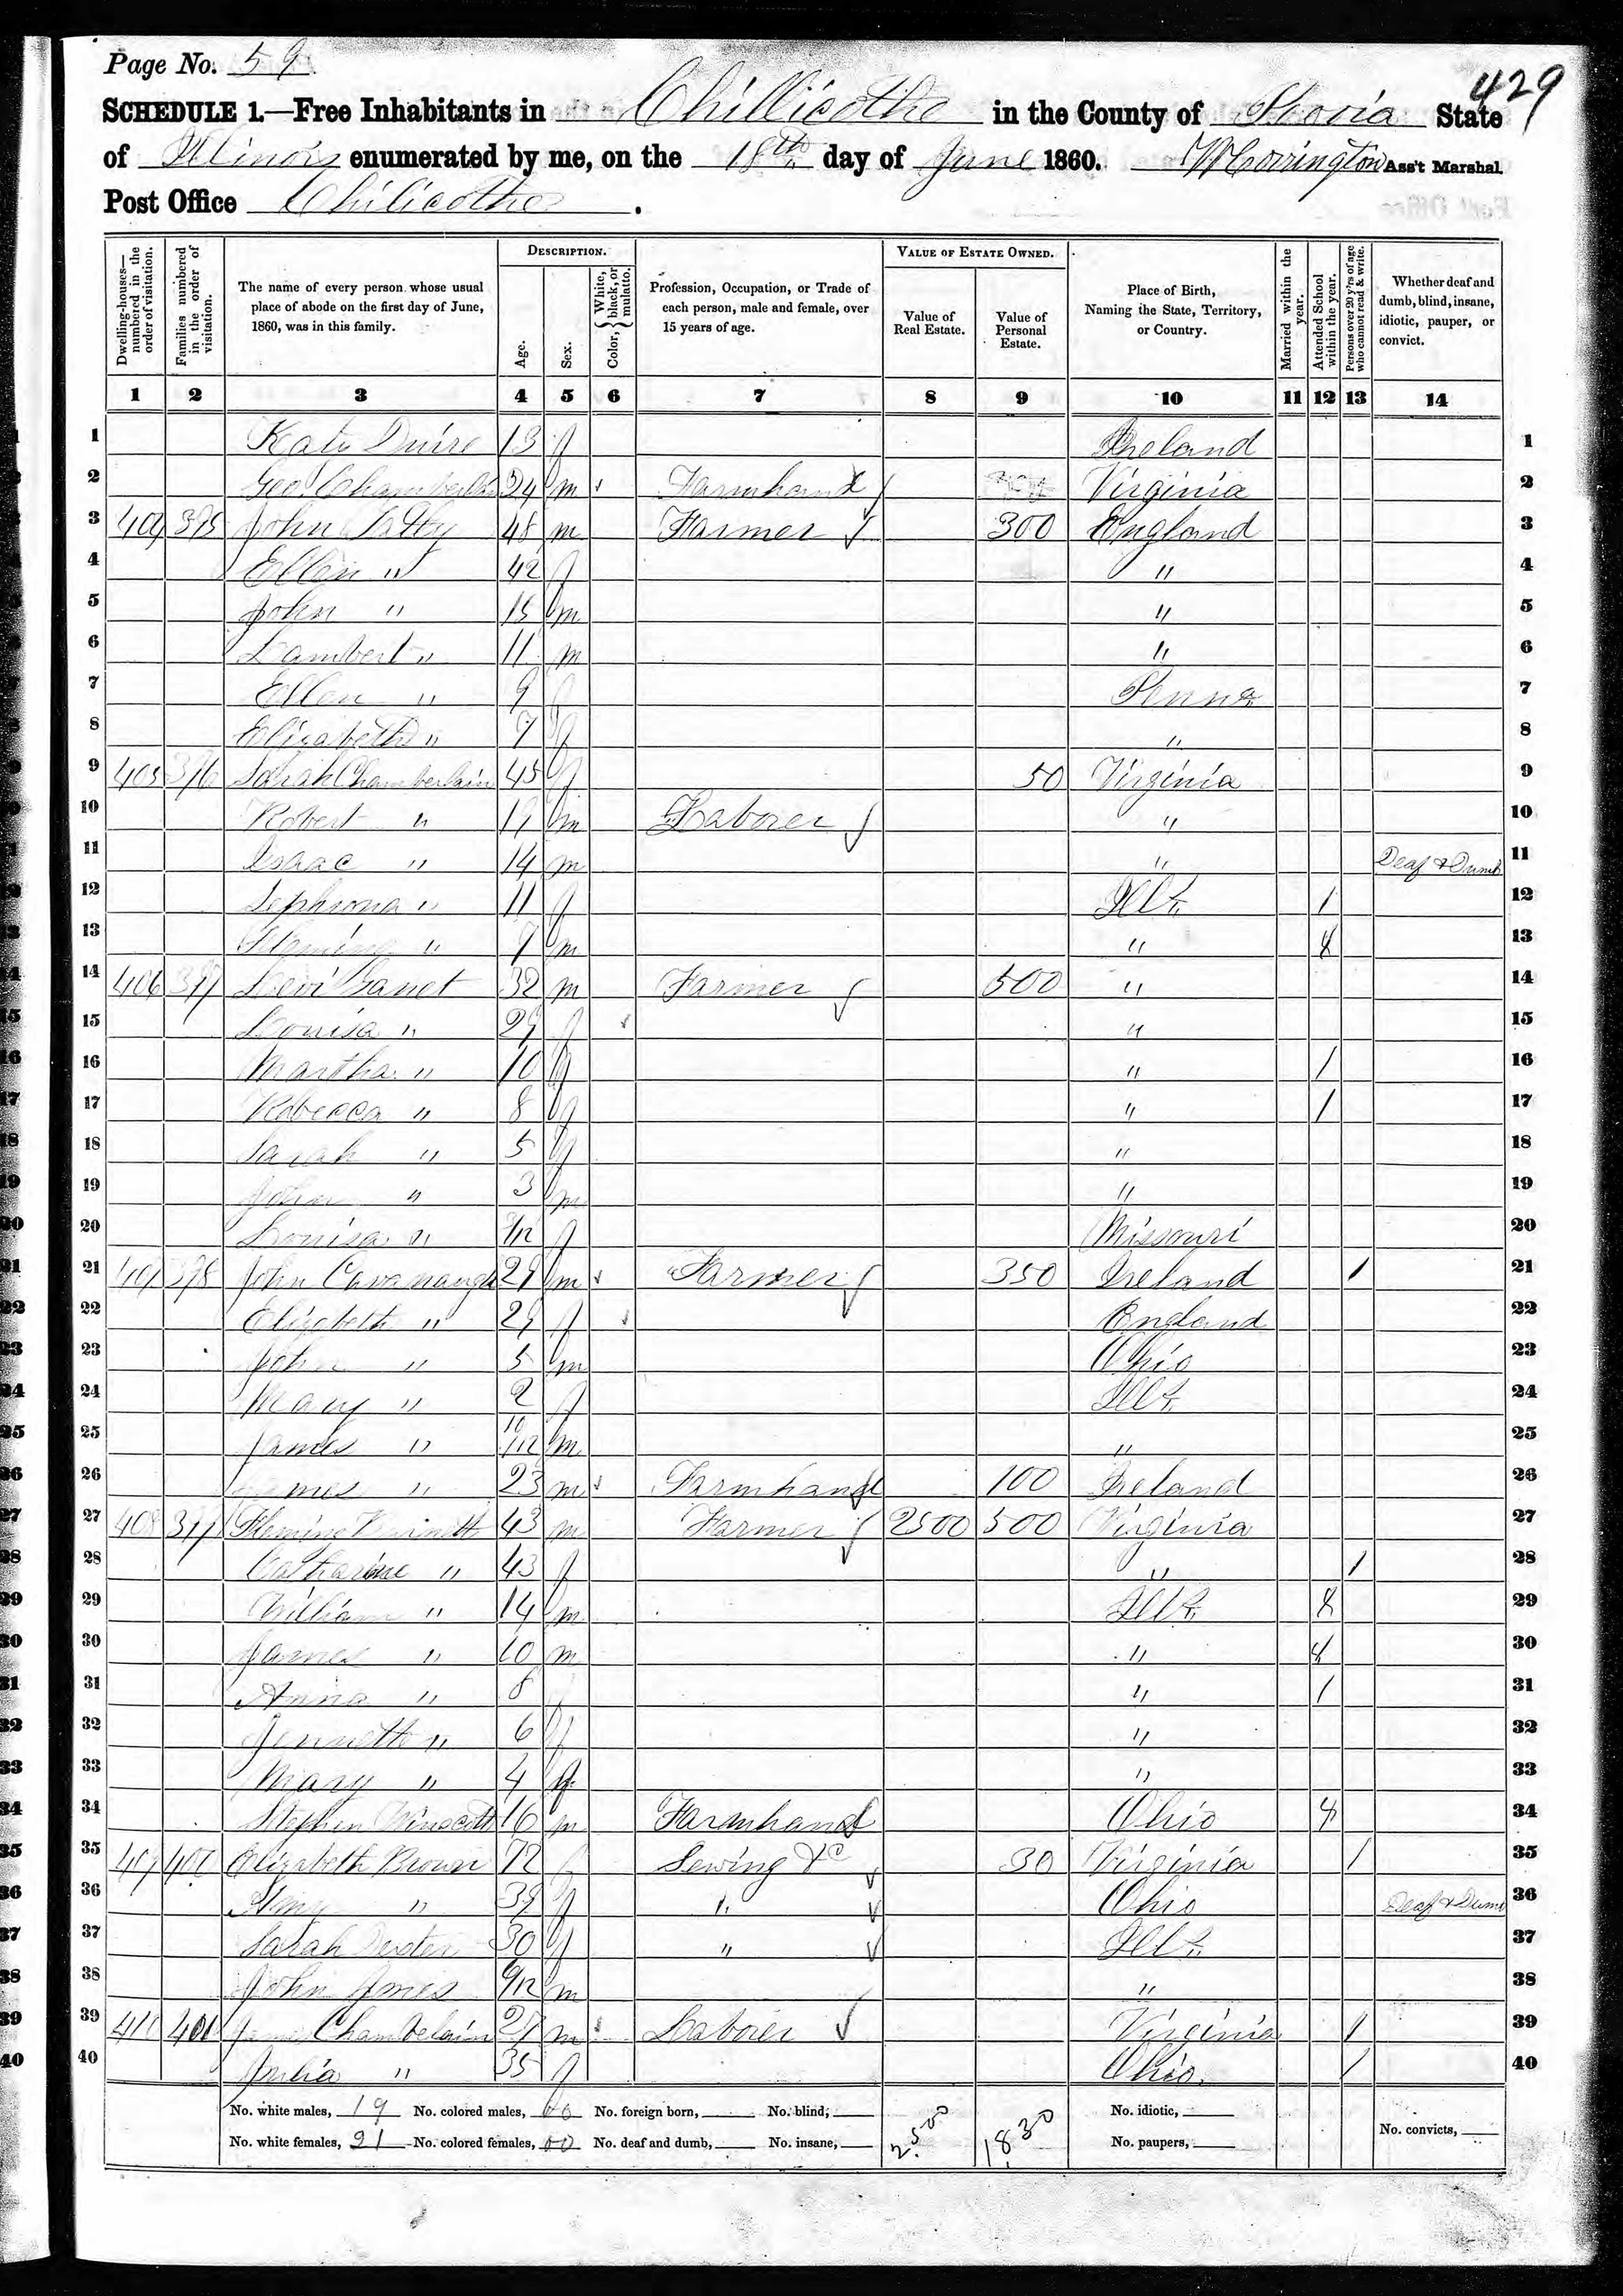 Page No. 59
429
SCHEDULE 1.—Free Inhabitants in Chillicothe in the County of Peoria State
of Illinois enumerated by me, on the 18th day of June 1860. Ass't Marshal.
Post Office Chilicothe.
Dwelling-houses—numbered in the order of visitation.
Families numbered in the order of visitation.
The name of every person whose usual place of abode on the first day of June, 1860, was in this family.
DESCRIPTION.
Age.
Sex.
Color, { White, black, or mulatto.
Profession, Occupation, or Trade of each person, male and female, over 15 years of age.
VALUE OF ESTATE OWNED.
Value of Real Estate.
Value of Personal Estate.
Place of Birth, Naming the State, Territory, or Country.
Married within the year.
Attended School within the year.
Persons over 20 y'rs of age who cannot read & write.
Whether deaf and dumb, blind, insane, idiotic, pauper, or convict.
1 2 3 4 5 6 7 8 9 10 11 12 13 14
1 Kate 13 f Ireland 1
2 Geo. Chamberlain 24 m Farmhand Virginia 2
3 404 395 John 48 m Farmer 300 England 3
4 Ellen " 42 f " 4
5 John " 15 m " 5
6 Lambert " 11 m " 6
7 Ellen " 9 f Penna 7
8 Elizabeth " 7 f " 8
9 405 396 Sarah Chamberlain 45 f 50 Virginia 9
10 Robert " m Laborer " 10
11 Isaac " 14 m " Deaf & Dumb 11
12 Sephrona " 11 f Ills. 1 12
13 Fleming " 7 m " 13
14 406 397 Levi 32 m Farmer 500 " 14
15 Louisa " 29 f " 15
16 Martha " 10 f " 1 16
17 Rebecca " 8 f " 1 17
18 Sarah " 5 f " 18
19 John " 3 m " 19
20 Louisa " /12 f Missouri 20
21 407 398 John Cavanaugh 29 m Farmer 350 Ireland 1 21
22 Elizabeth " 29 f England 22
23 John " 5 m Ohio 23
24 Mary " 2 f Ills. 24
25 James " 10/12 m " 25
26 James " 23 m Farmhand 100 Ireland 26
27 408 399 Fleming 43 m Farmer 2500 500 Virginia 27
28 Catharine " 43 f " 1 28
29 William " 14 m Ills. 29
30 James " 10 m " 30
31 Anna " 8 f " 1 31
32 Jennette " 6 f " 32
33 Mary " 4 f " 33
34 Stephen 16 m Farmhand Ohio 34
35 409 400 Elizabeth Brown 72 f Sewing &c 30 Virginia 1 35
36 " 39 f " Ohio Deaf & Dumb 36
37 Sarah 30 f " Ills. 37
38 John Jones 9/12 m " 38
39 410 401 James Chamberlain 27 m Laborer Virginia 1 39
40 Julia " 35 f Ohio. 1 40
No. white males, 19 No. colored males, 00 No. foreign born, No. blind, 2500 1830 No. idiotic,
No. white females, 21 No. colored females, 00 No. deaf and dumb, No. insane, No. paupers, No. convicts,